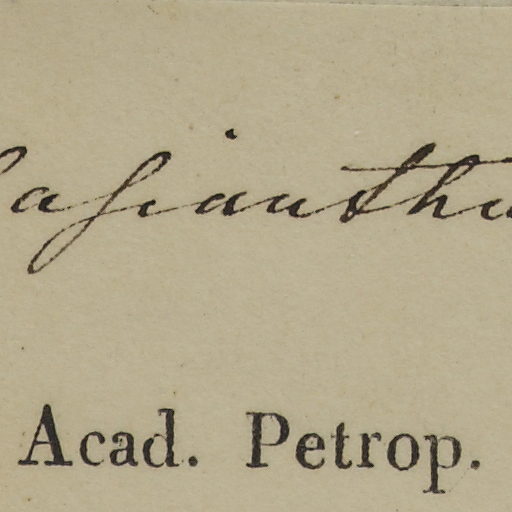 Lasianthu
Acad. Petrop.